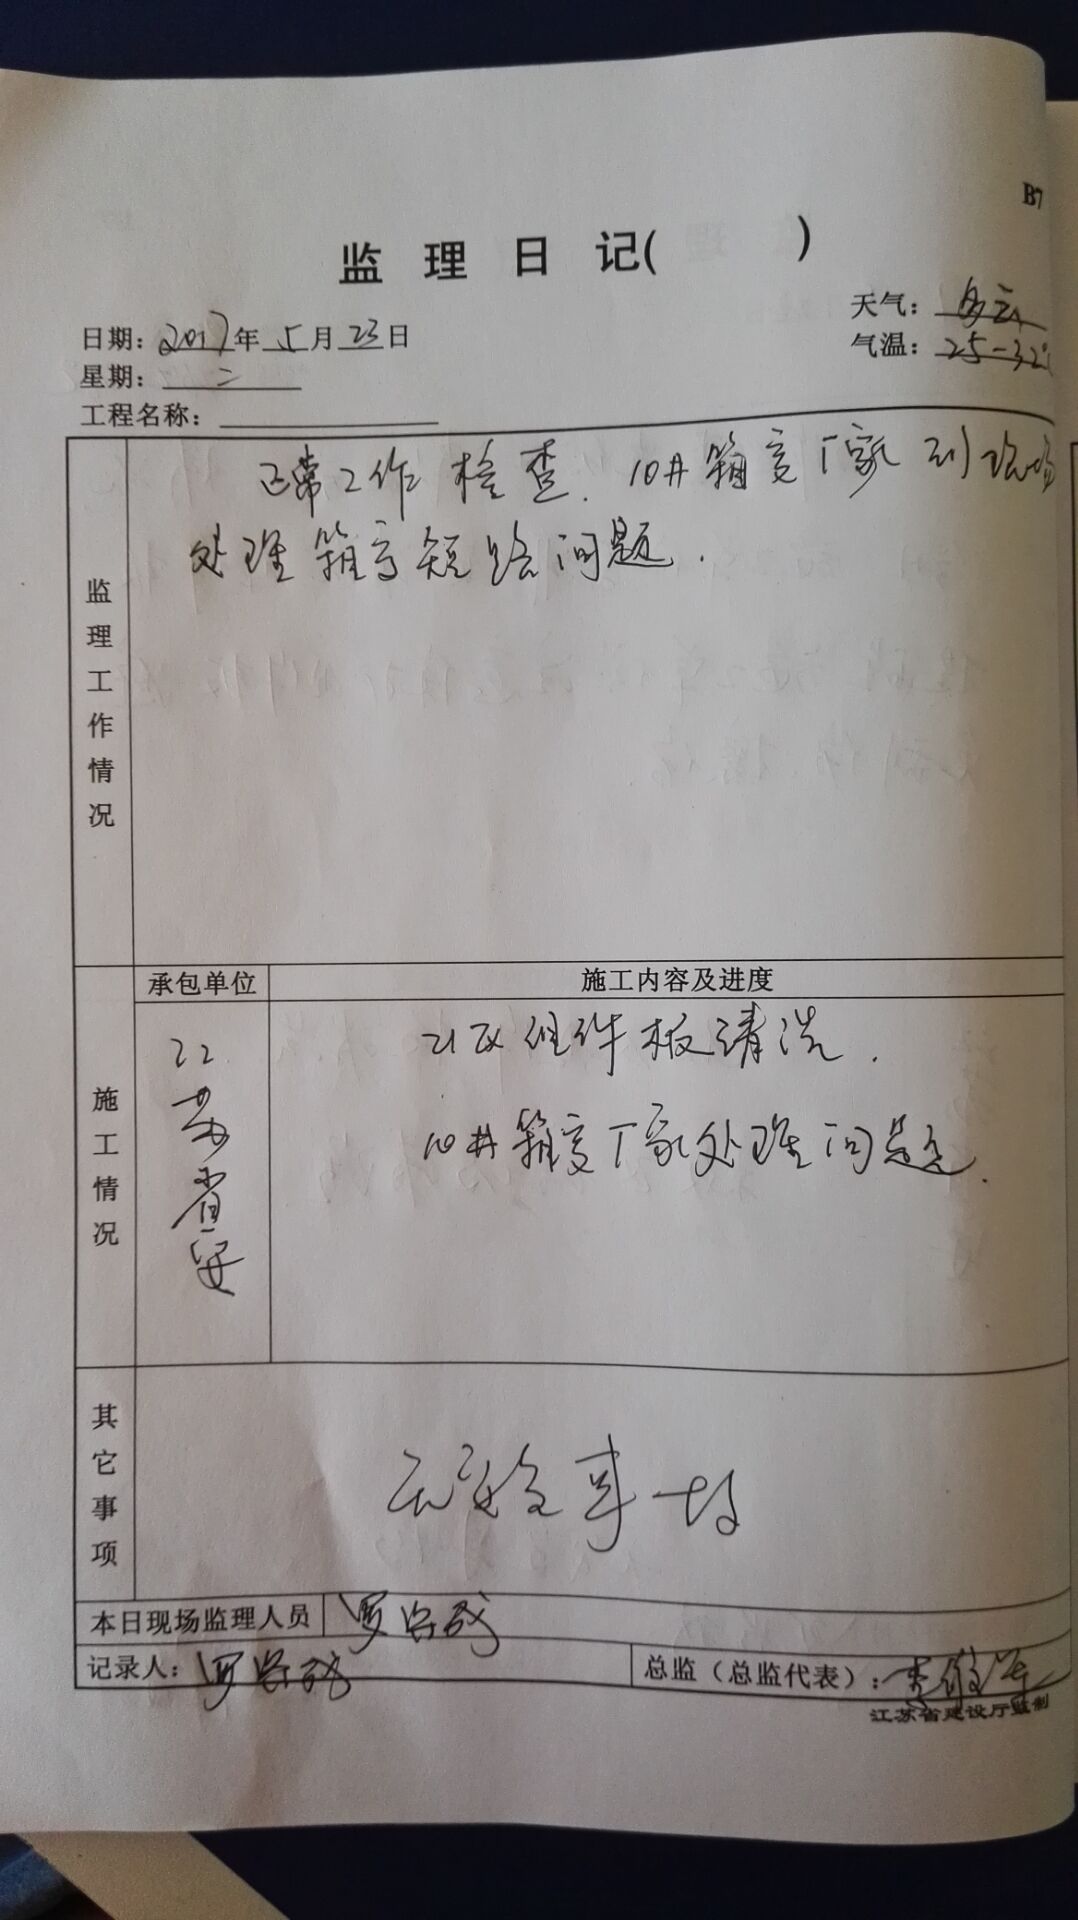 B7
监理日记( )
日期：2017年5月23日
天气：多云
星期：二
气温：25-32℃
工程名称：
监理工作情况
正常工作检查．10#箱变厂家到现场
处理箱变短路问题．
施工情况
承包单位
施工内容及进度
江苏省安
21区组件板清洗．
10#箱变厂家处理问题．
其它事项
无安全事故
本日现场监理人员
记录人：
总监（总监代表）：
江苏省建设厅监制